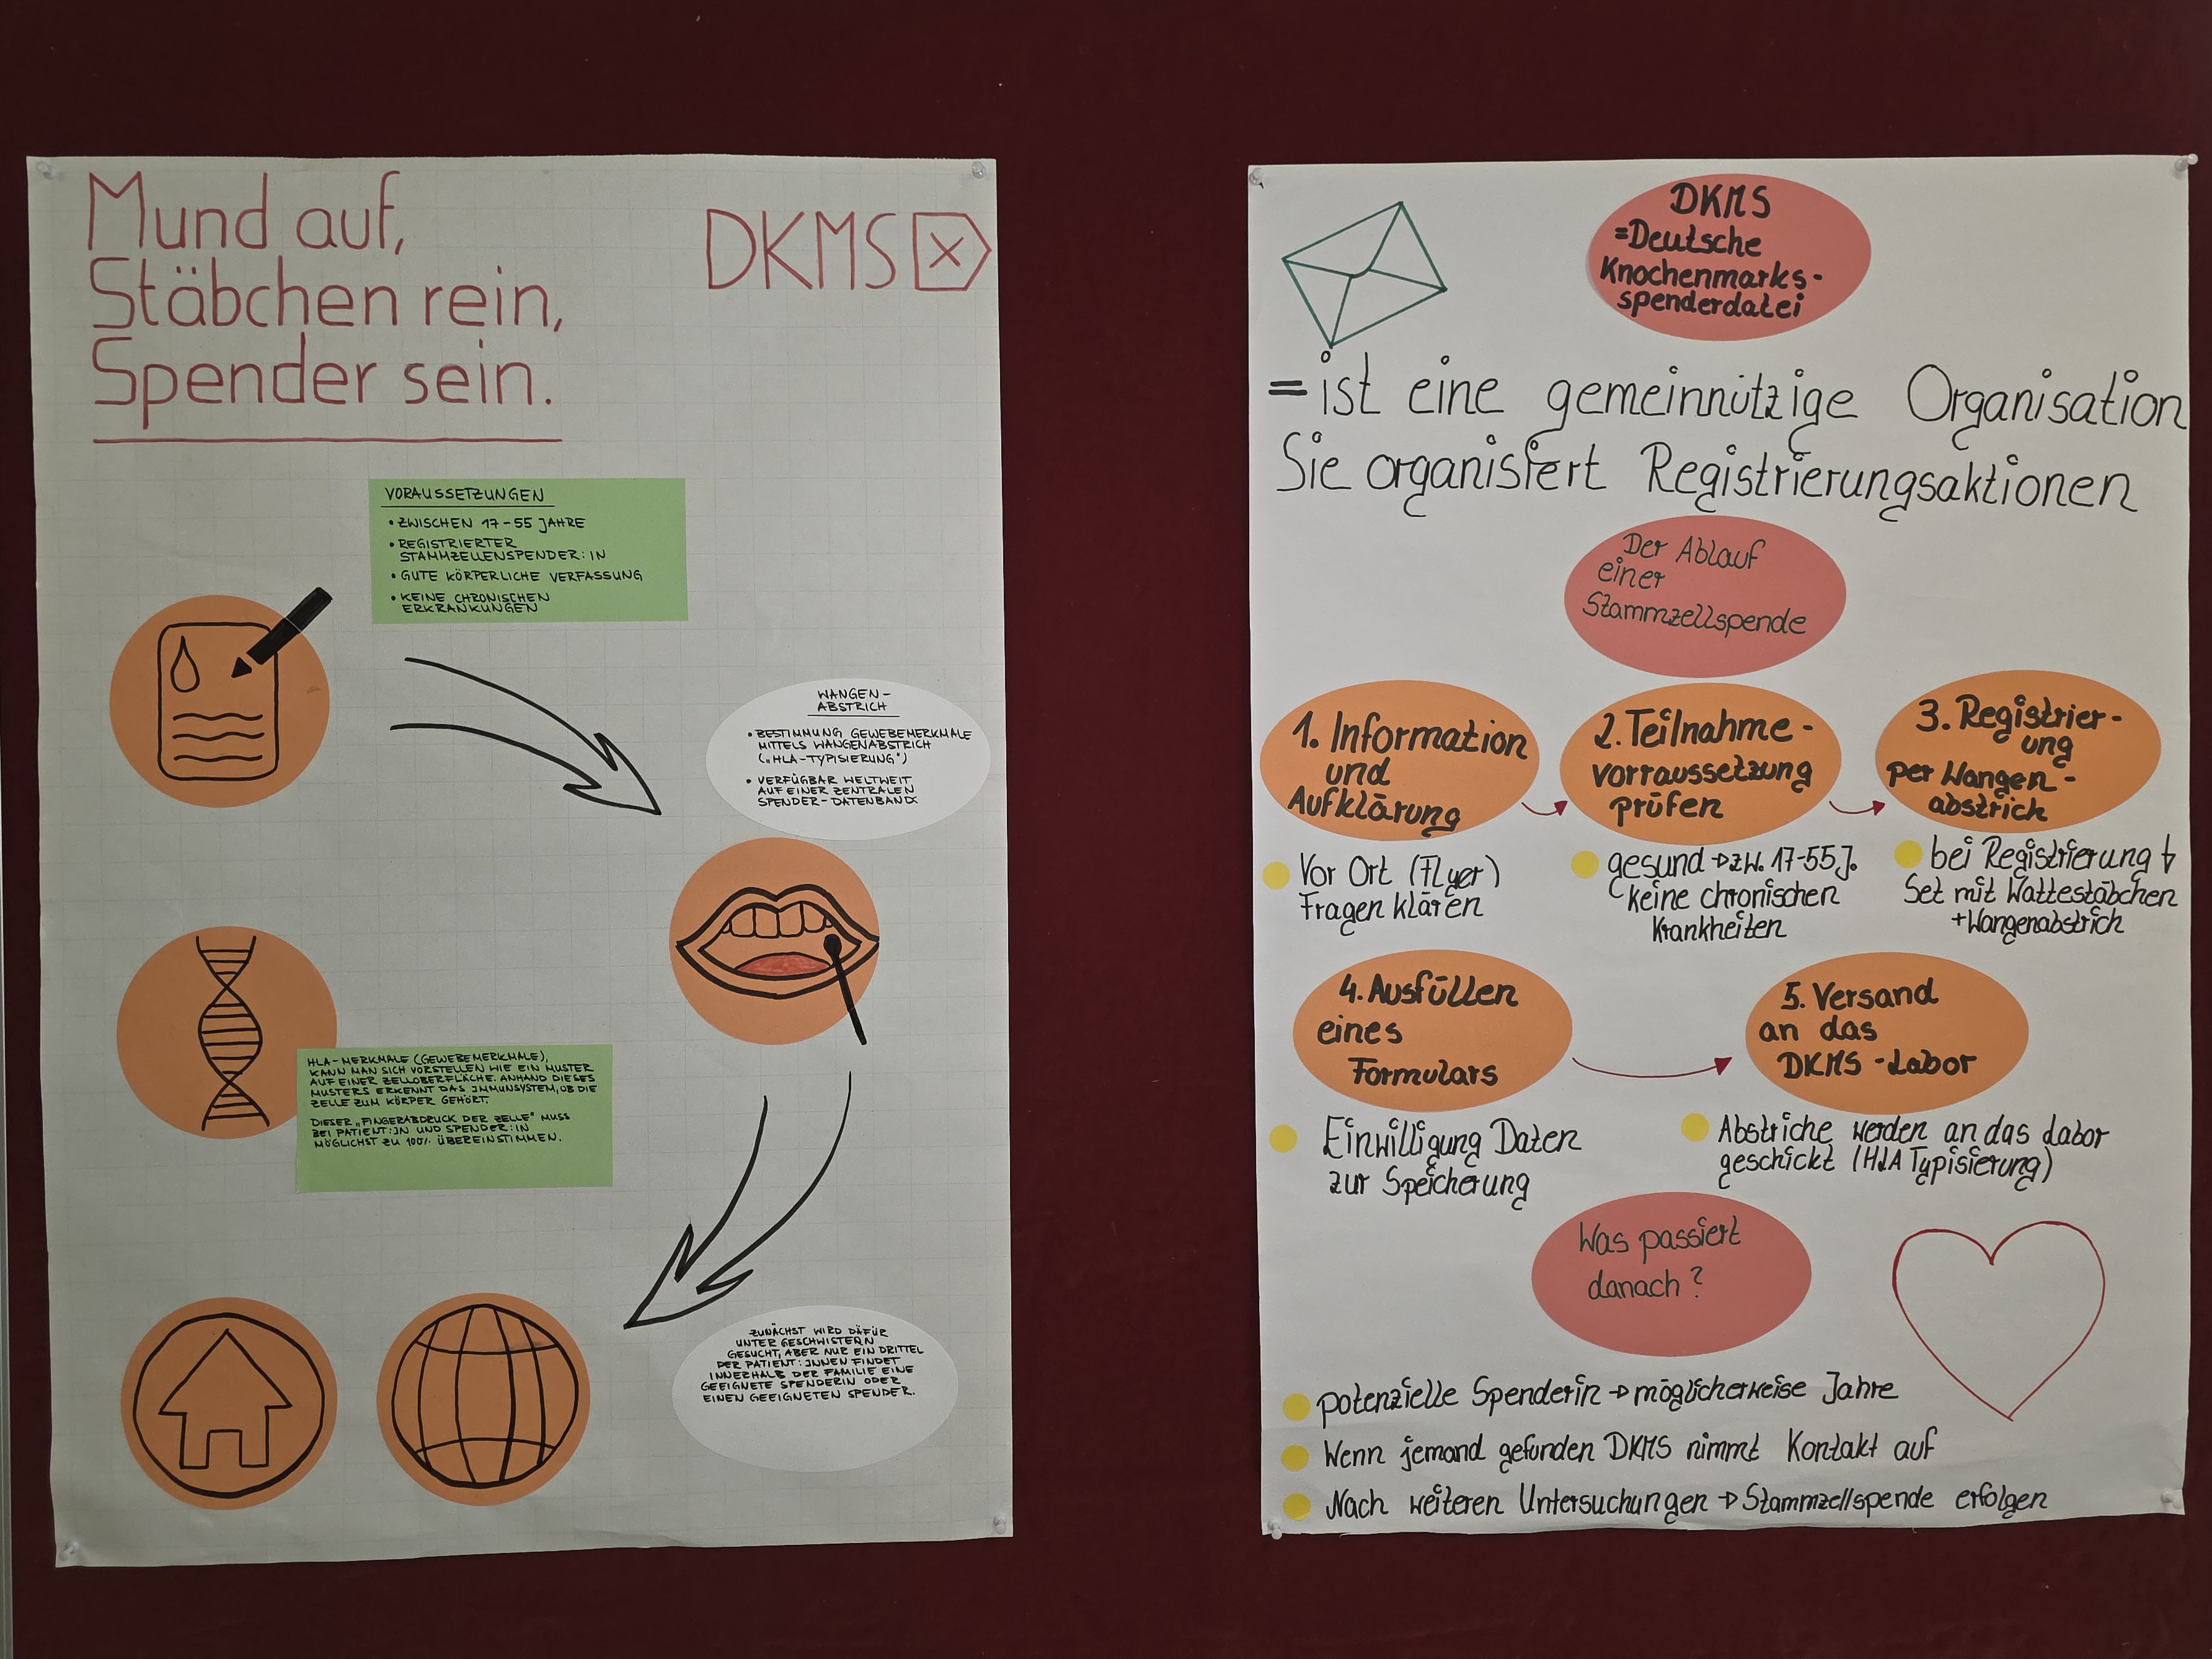 Mund auf,
Stäbchen rein,
Spender sein.
DKMS x
VORAUSSETZUNGEN
• ZWISCHEN 17-55 JAHRE
• REGISTRIERTER
STAMMZELLENSPENDER:IN
• GUTE KÖRPERLICHE VERFASSUNG
• KEINE CHRONISCHEN
ERKRANKUNGEN
WANGEN-
ABSTRICH
• BESTIMMUNG GEWEBEMERKMALE
MITTELS WANGENABSTRICH
(„HLA-TYPISIERUNG")
• VERFÜGBAR WELTWEIT
AUF EINER ZENTRALEN
SPENDER-DATENBANK
HLA-MERKMALE (GEWEBEMERKMALE),
KANN MAN SICH VORSTELLEN WIE EIN MUSTER
AUF EINER ZELLOBERFLÄCHE. ANHAND DIESES
MUSTERS ERKENNT DAS IMMUNSYSTEM, OB DIE
ZELLE ZUM KÖRPER GEHÖRT.
DIESER „FINGERABDRUCK DER ZELLE" MUSS
BEI PATIENT:IN UND SPENDER:IN
MÖGLICHST ZU 100% ÜBEREINSTIMMEN.
ZUNÄCHST WIRD DAFÜR
UNTER GESCHWISTERN
GESUCHT, ABER NUR EIN DRITTEL
DER PATIENT:INNEN FINDET
INNERHALB DER FAMILIE EINE
GEEIGNETE SPENDERIN ODER
EINEN GEEIGNETEN SPENDER.
DKMS
=Deutsche
Knochenmarks-
spenderdatei
= ist eine gemeinnützige Organisation
Sie organisiert Registrierungsaktionen
Der Ablauf
einer
Stammzellspende
1. Information
und
Aufklärung
2. Teilnahme-
vorraussetzung
prüfen
3. Registrier-
ung
per Wangen-
abstrich
Vor Ort (Flyer)
Fragen klären
gesund → zw. 17-55 J.
keine chronischen
Krankheiten
bei Registrierung ↓
Set mit Wattestäbchen
+Wangenabstrich
4. Ausfüllen
eines
Formulars
5. Versand
an das
DKMS-Labor
Einwilligung Daten
zur Speicherung
Abstriche werden an das Labor
geschickt (HLA Typisierung)
Was passiert
danach?
potenzielle Spenderin → möglicherweise Jahre
Wenn jemand gefunden DKMS nimmt Kontakt auf
Nach weiteren Untersuchungen → Stammzellspende erfolgen